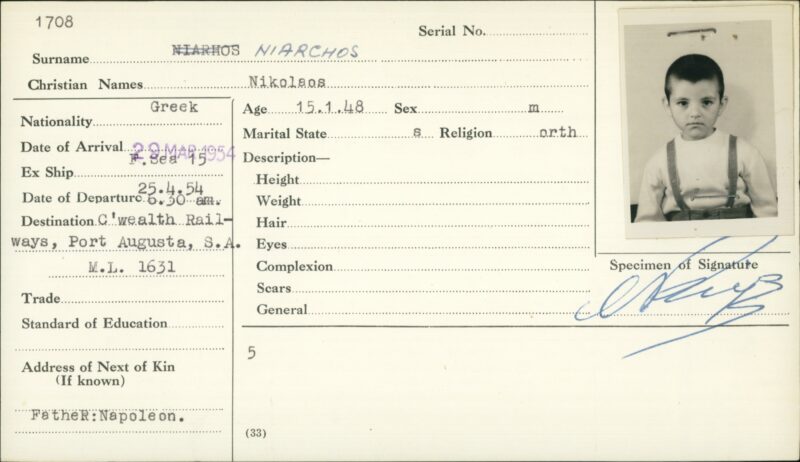 1708
Serial No.
Surname NIARHOS NIARCHOS
Christian Names Nikolaos
Nationality Greek
Date of Arrival 29 MAR 1954
Ex Ship F.Sea 15
Date of Departure 25.4.54 6.30 am.
Destination C'wealth Rail-
ways, Port Augusta, S.A.
M.L. 1631
Trade
Standard of Education
Address of Next of Kin
(If known)
FatheR:Napoleon.
Age 15.1.48 Sex m
Marital State s Religion orth
Description—
Height
Weight
Hair
Eyes
Complexion
Scars
General
5
(33)
Specimen of Signature